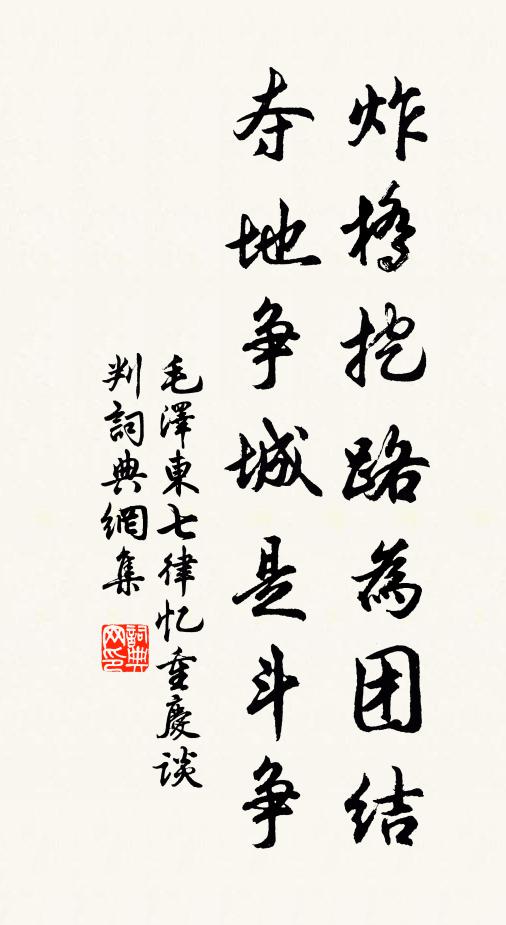 炸橋挖路為团结
夺地争城是斗争
毛澤東七律忆重慶谈
判詞典網集
詞典网印